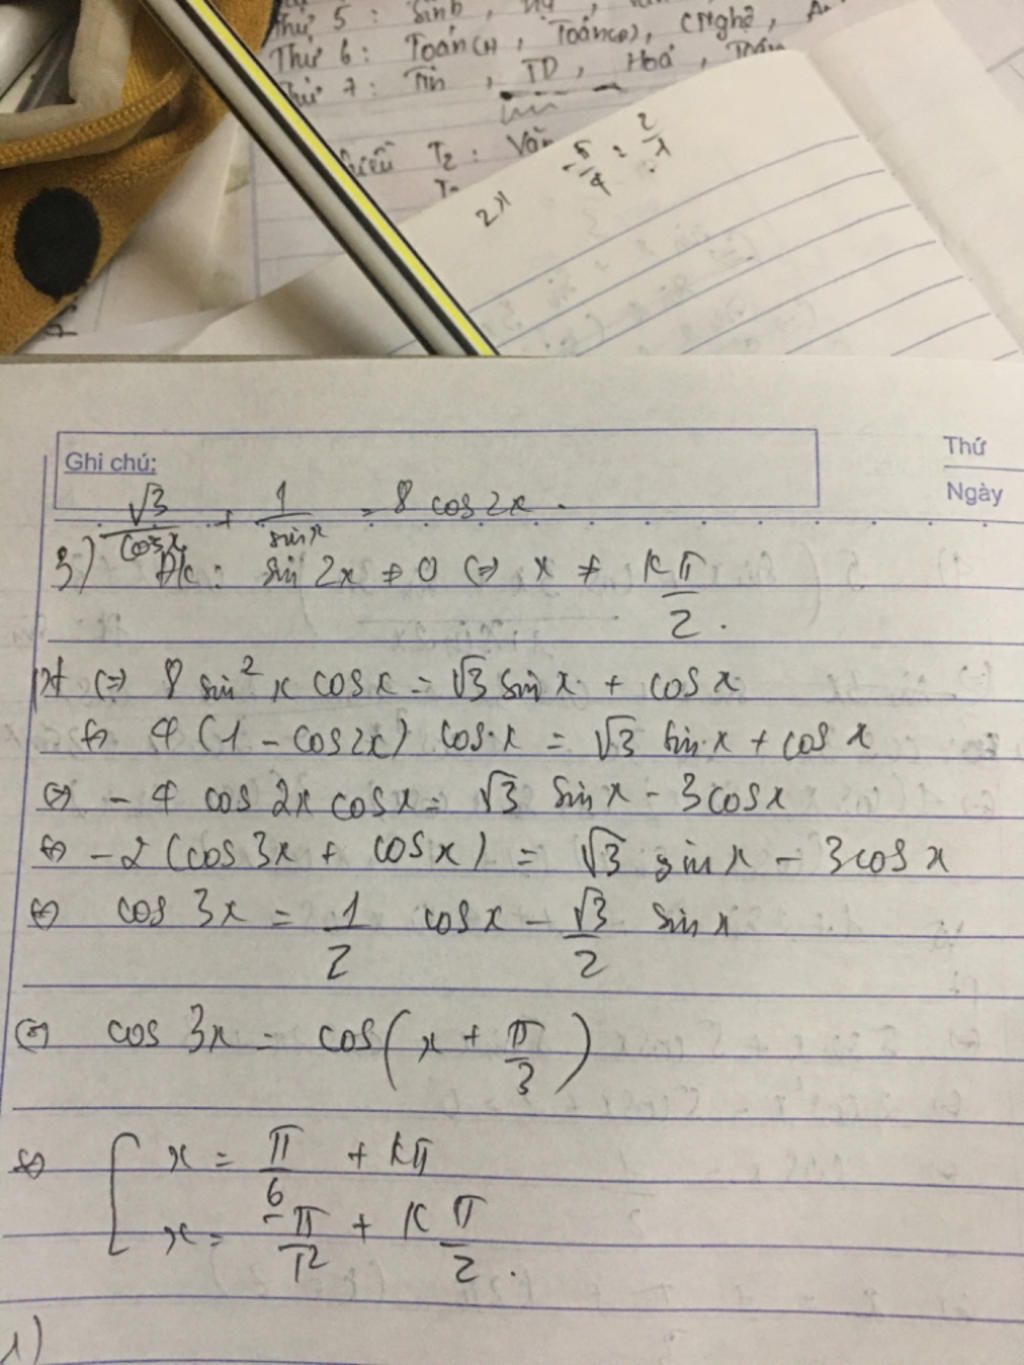 Thứ 5 : Sinh,
Thứ 6 : Toán(H), Toán(Đ), CNghệ,
Thứ 7 : Tin, TD, Hoá,
T2 : Văn
2x
5/4 = 2/x
Ghi chú:
Thứ
Ngày
√3/cosx + 1/sinx = 8 cos2x.
3) Đk: sin 2x ≠ 0 ⇔ x ≠ kπ/2.
pt ⇔ 8 sin² x cosx = √3 sinx + cosx
⇔ 4 (1 - cos2x) cosx = √3 sinx + cosx
⇔ - 4 cos 2x cosx = √3 sinx - 3cosx
⇔ -2 (cos 3x + cosx) = √3 sinx - 3cosx
⇔ cos 3x = 1/2 cosx - √3/2 sinx
⇔ cos 3x = cos(x + π/3)
⇔ [ x = π/6 + kπ
x = -π/12 + k π/2.
1)